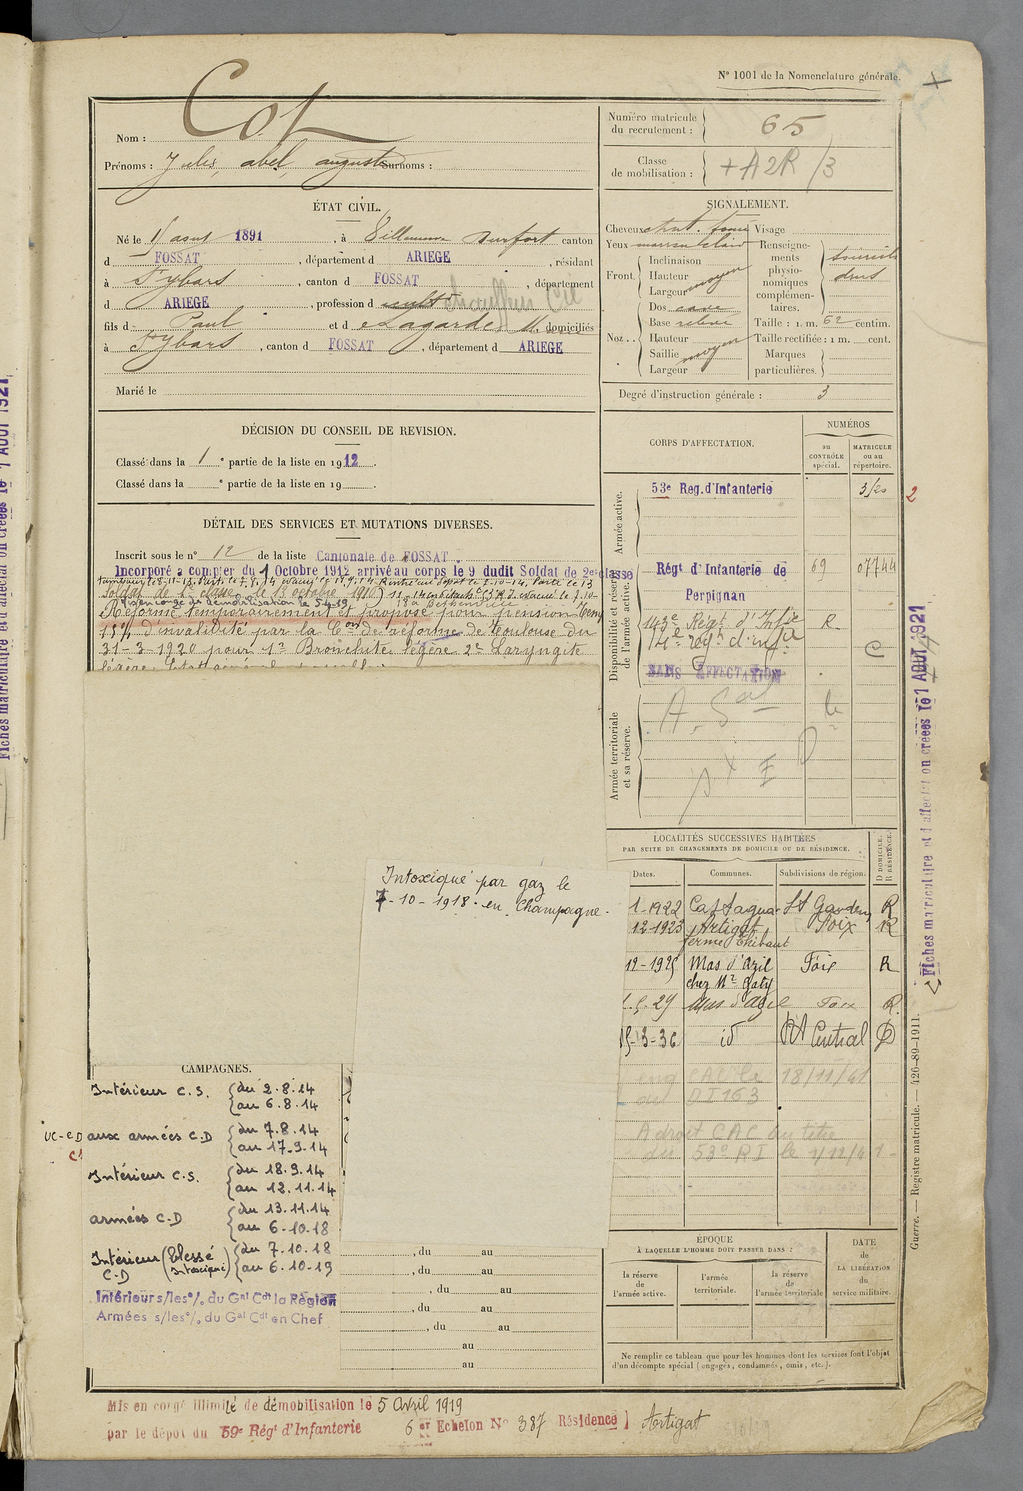 N° 1001 de la Nomenclature générale.
Nom : Cot
Prénoms : Jules, abel, auguste Surnoms :
ÉTAT CIVIL.
Né le 1 aout 1891, à Villeneuve Durfort canton
d FOSSAT, département d ARIEGE, résidant
à St Ybars, canton d FOSSAT, département
d ARIEGE, profession de cult chauffeur
fils de Paul et de Lagarde M. domiciliés
à St Ybars, canton d FOSSAT, département d ARIEGE
Marié le
DÉCISION DU CONSEIL DE REVISION.
Classé dans la 1e partie de la liste en 1912.
Classé dans la e partie de la liste en 19
DÉTAIL DES SERVICES ET MUTATIONS DIVERSES.
Inscrit sous le n° 12 de la liste Cantonale de FOSSAT
Incorporé à compter du 1 Octobre 1912 arrivé au corps le 9 dudit Soldat de 2e classe
Réformé temporairement et proposé pour pension temp
15% d'invalidité par la Con de réforme de Toulouse du
31-3-1920 pour 1° Bronchite légère 2° Laryngite
Intoxiqué par gaz le
7-10-1918 en Champagne.
CAMPAGNES.
Intérieur C.S. { du 2.8.14
au 6.8.14
aux armées C.D { du 7.8.14
au 17.9.14
Intérieur C.S. { du 18.9.14
au 12.11.14
armées C.D { du 13.11.14
au 6-10-18
Intérieur (blessé { du 7.10.18
C.D Intoxiqué) au 6-10-19
Intérieur s/les °/. du Gal Cdt la Région
Armées s/les °/. du Gal Cdt en Chef
, du au
, du au
, du au
, du au
, du au
au
au
Numéro matricule
du recrutement : 65
Classe
de mobilisation : + A2R /3
SIGNALEMENT.
Cheveux chat. foncé Visage
Yeux marron clair
Front. Inclinaison
Hauteur
Largeur moyen
Nez .. Dos cave
Base relevé
Hauteur
Saillie moyen
Largeur
Renseignements
physionomiques
complémentaires.
sourcils
drus
Taille : 1 m. 62 centim.
Taille rectifiée : 1 m. cent.
Marques
particulières.
Degré d'instruction générale : 3
CORPS D'AFFECTATION.
NUMÉROS
au
CONTRÔLE
spécial.
MATRICULE
ou au
répertoire.
Armée active.
53e Reg. d'Infanterie 3/20 2
Disponibilité et réserve
de l'armée active.
Régt d'Infanterie de 69 07744
Perpignan
143e Régt d'Inf R
14e rég. d'infie C
SANS AFFECTATION
Armée territoriale
et sa réserve.
LOCALITÉS SUCCESSIVES HABITÉES
PAR SUITE DE CHANGEMENTS DE DOMICILE OU DE RÉSIDENCE.
Dates. Communes. Subdivisions de région. D DOMICILE. R RÉSIDENCE.
1-1922 Castagnac St Gaudens R
12-1923 Artigat Foix R
ferme Thibaut
12-1925 Mas d'Azil Foix R
chez Mr Gaty
Mas d'Azil Foix R.
15-3-36 id RA Central D
18/11/41
A droit CAC au titre
du 53e RI le 1/12/41
ÉPOQUE
À LAQUELLE L'HOMME DOIT PASSER DANS :
la réserve
de
l'armée active.
l'armée
territoriale.
la réserve
de
l'armée territoriale
DATE
de
LA LIBÉRATION
du
service militaire.
Ne remplir ce tableau que pour les hommes dont les services font l'objet
d'un décompte spécial (engagés, condamnés, omis, etc.).
Mis en congé illimité de démobilisation le 5 Avril 1919
par le dépôt du 59e Régt d'Infanterie 6er Echelon N° 387 Résidence } Artigat
Guerre. — Registre matricule. — 426-89-1911.
Fiches matriculaire et d'affectation créées le 1 AOUT 1921